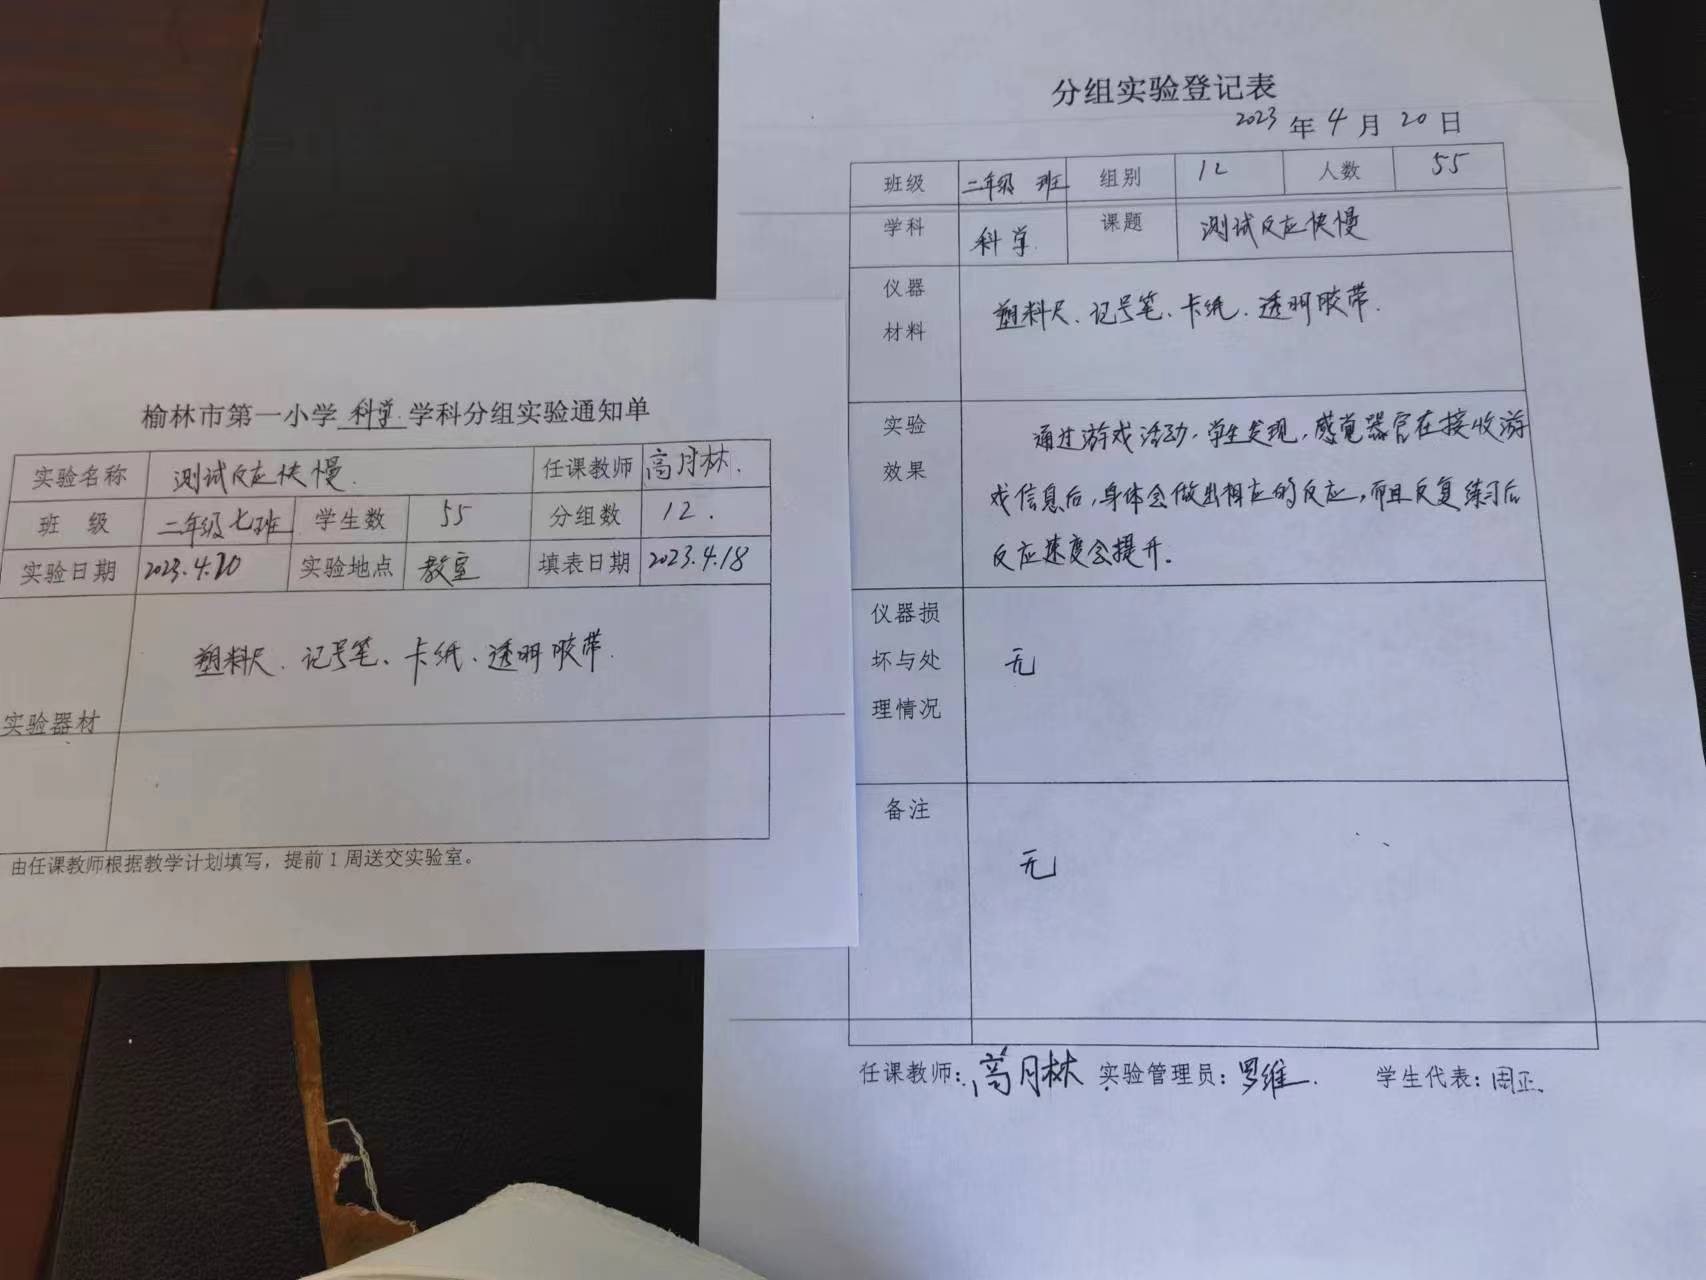 榆林市第一小学 科学 学科分组实验通知单
实验名称 测试反应快慢. 任课教师 高月林.
班 级 二年级七班 学生数 55 分组数 12.
实验日期 2023.4.20 实验地点 教室 填表日期 2023.4.18
实验器材 塑料尺、记号笔、卡纸、透明胶带.
由任课教师根据教学计划填写，提前1周送交实验室。
分组实验登记表
2023 年 4 月 20 日
班级 二年级 班 组别 12 人数 55
学科 科学. 课题 测试反应快慢
仪器
材料
塑料尺、记号笔、卡纸、透明胶带.
实验
效果
通过游戏活动，学生发现，感觉器官在接收游
戏信息后，身体会做出相应的反应，而且反复练习后
反应速度会提升.
仪器损
坏与处
理情况
无
备注
无
任课教师：高月林 实验管理员：罗维. 学生代表：周正.